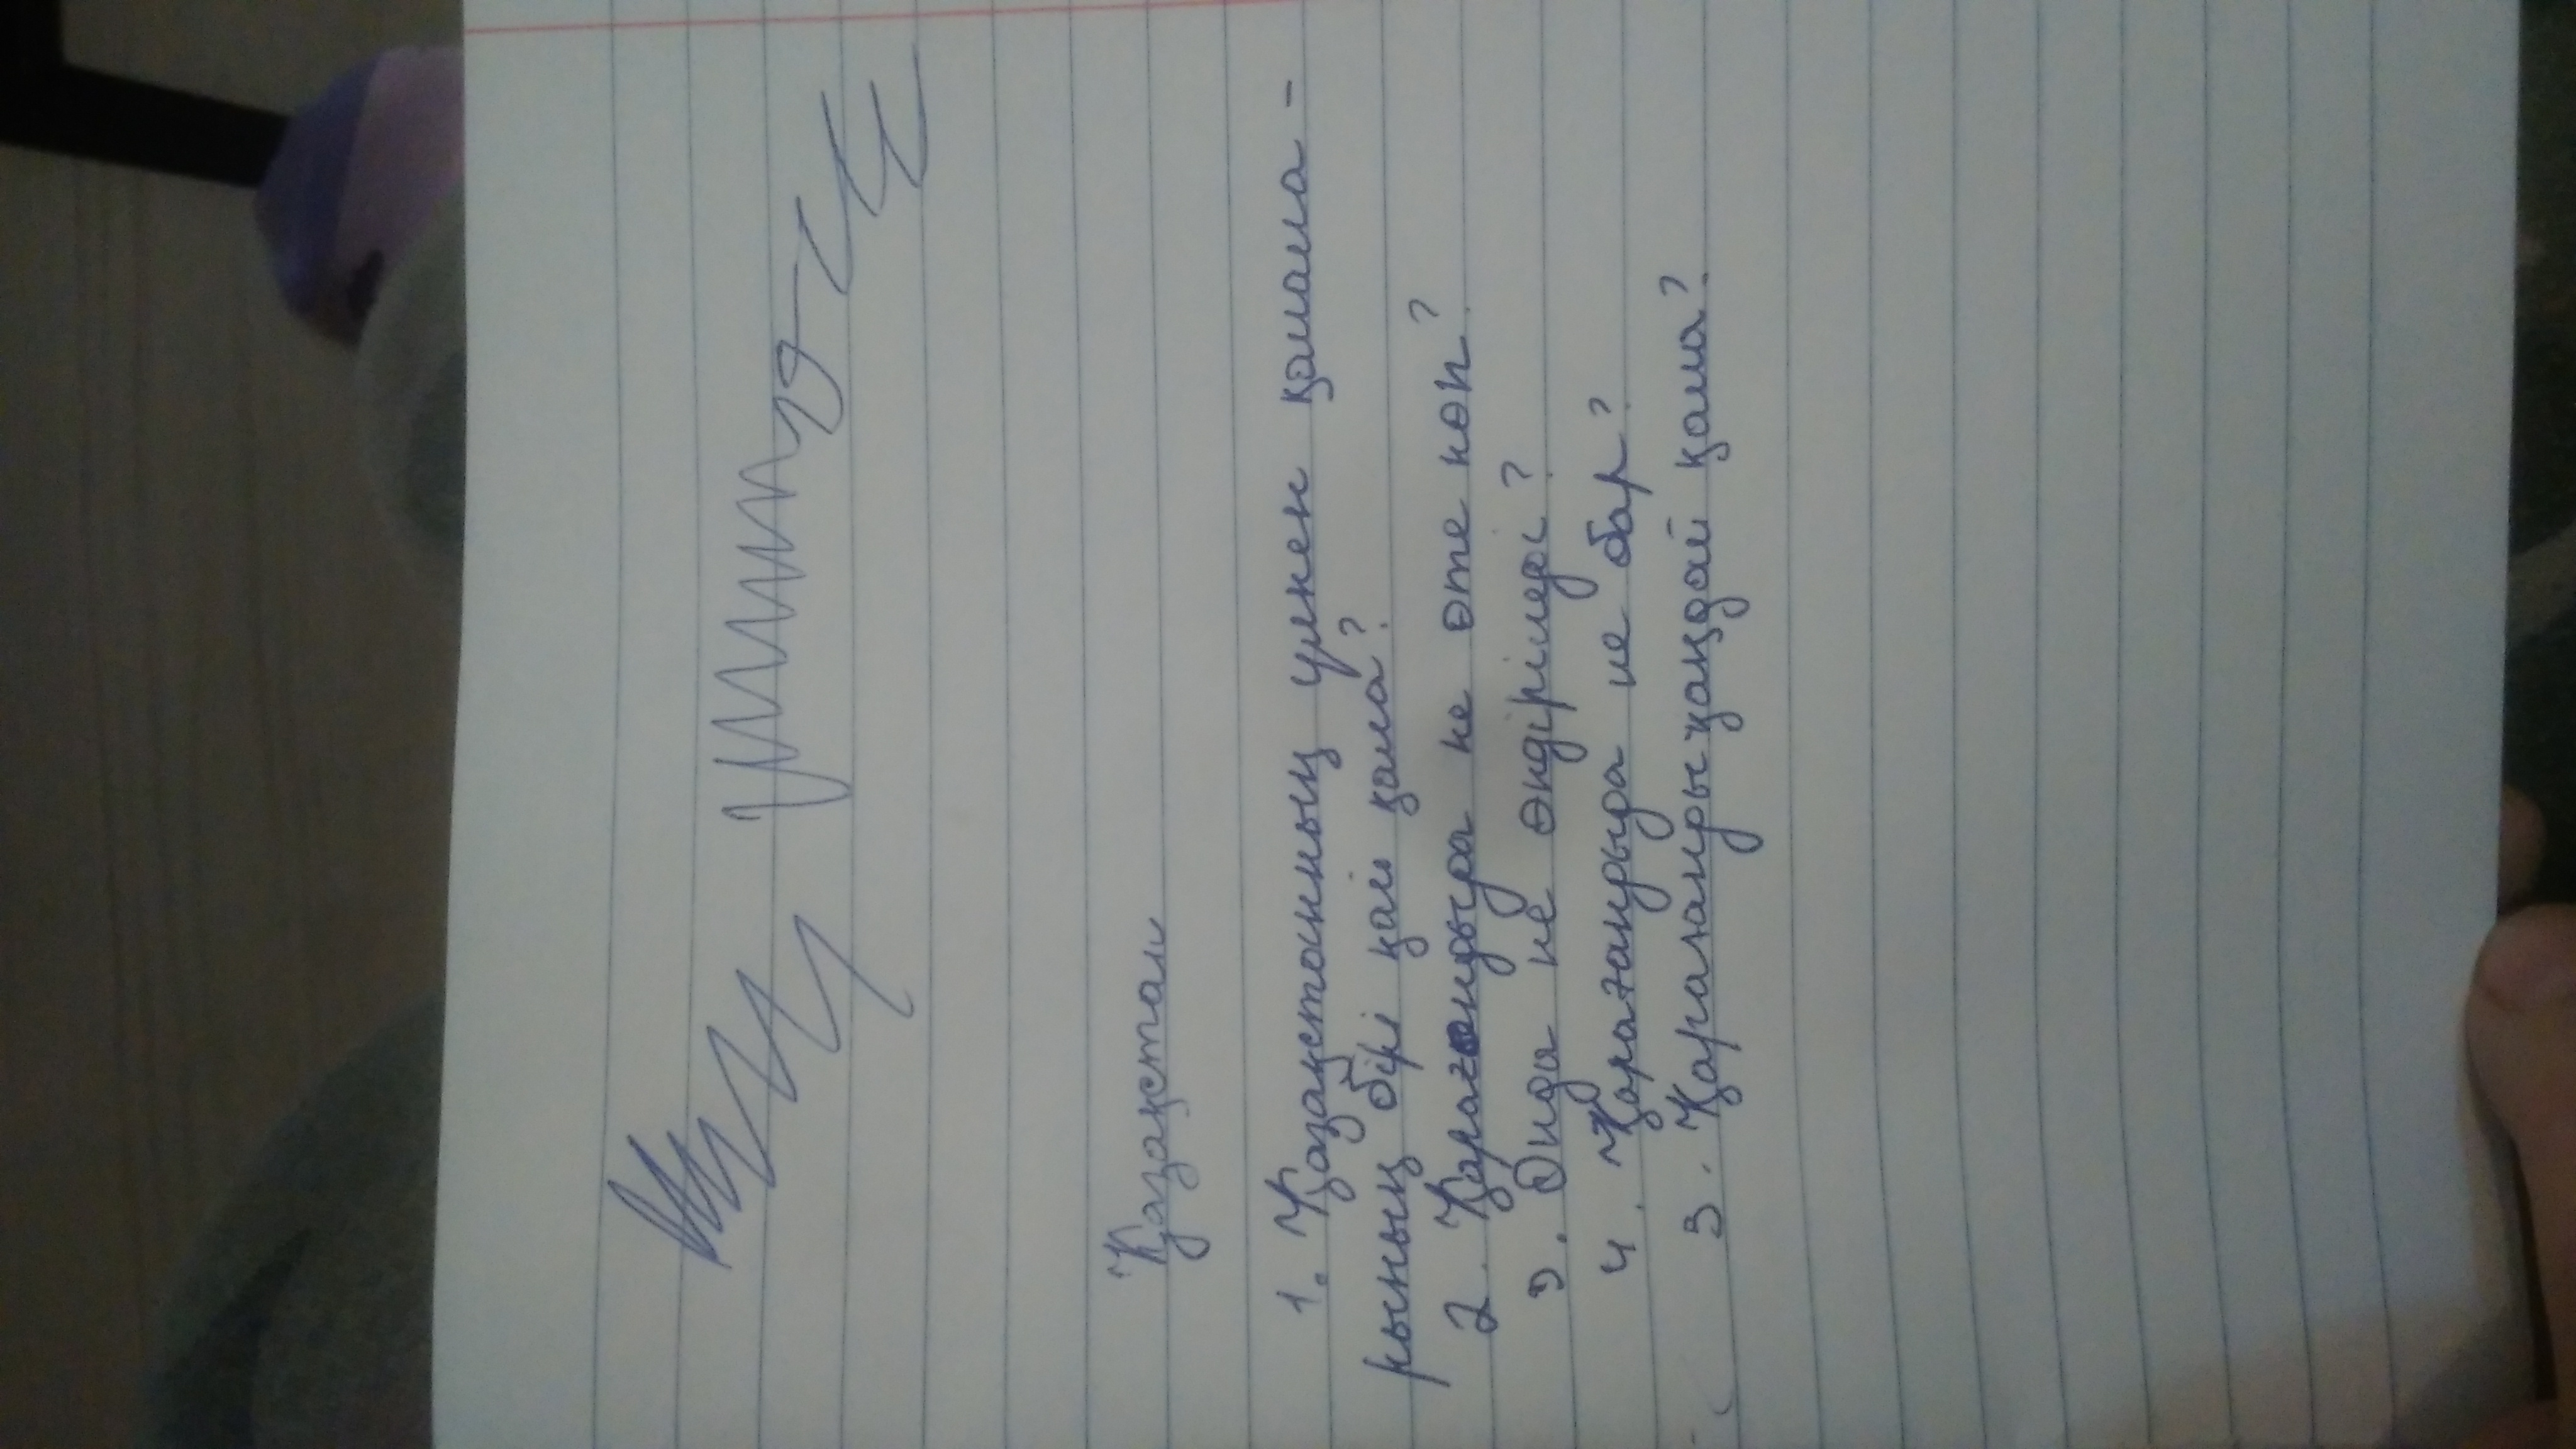 Қазақстан
1. Қазақстонның үлкен қалала-
рының бірі қай қала?
2. Қарағандыда не өте көп?
3. Онда не өндіріледі?
4. Қарағандыда не бар?
5. Қарағанды қандай қала?